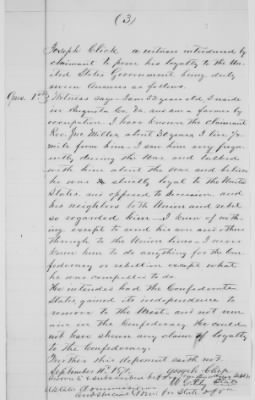 (3)
Joseph Click a witness introduced by
claimant to prove his loyalty to the Uni-
ted States Government being duly
sworn Answers as follows.
Ques. 1st &
Witness says I am 52 years old I reside
in Augusta Co. Va. and am a farmer by
occupation. I have known the claimant
Rev. Jno Miller about 30 years I live 1/2
mile from him. I saw him very frequ
ently during the War and talked
with him about the war and believe
he was strictly loyal to the United
States and opposed to Secession and
his neighbors both Union and rebel
so regarded him. I knew of noth-
ing except to send his son and others
through to the Union lines. I never
knew him to do anything for the Con-
federacy or rebellion except what
he was compelled to do.
He intended had the Confederate
States gained its independence to
remove to the West and not rem
ain in the Confederacy He could
not have shown any claim of loyalty
to the Confederacy.
Further this deponent saith not.
September 1871. Joseph Click
Sworn & subscribed before me